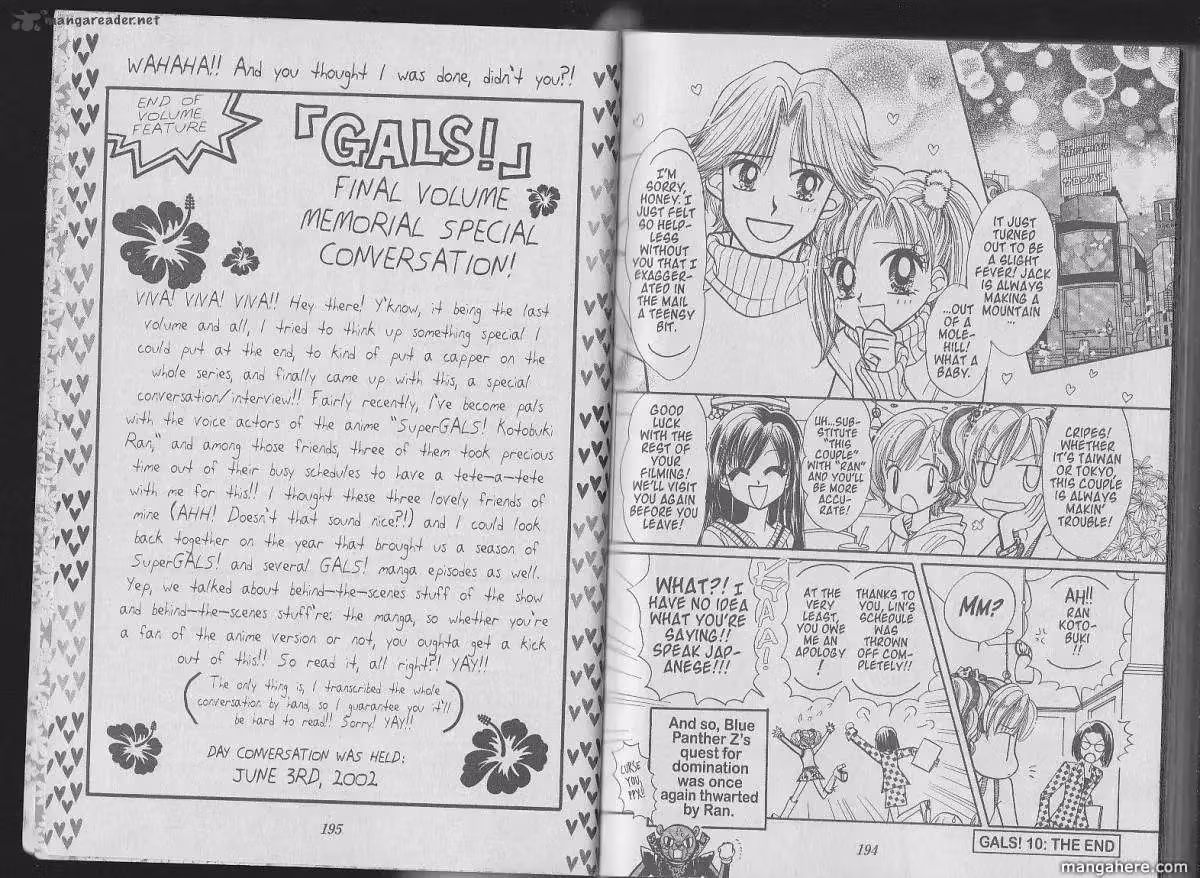 mangareader.net
WAHAHA!! And you thought I was done, didn't you?!
END OF
VOLUME
FEATURE
「GALS!」
FINAL VOLUME
MEMORIAL SPECIAL
CONVERSATION!
VIVA! VIVA! VIVA!! Hey there! Y'know, it being the last
volume and all, I tried to think up something special I
could put at the end, to kind of put a capper on the
whole series, and finally came up with this, a special
conversation/interview!! Fairly recently, I've become pals
with the voice actors of the anime "SuperGALS! Kotobuki
Ran," and among those friends, three of them took precious
time out of their busy schedules to have a tete-a-tete
with me for this!! I thought these three lovely friends of
mine (AHH! Doesn't that sound nice?!) and I could look
back together on the year that brought us a season of
SuperGALS! and several GALS! manga episodes as well.
Yep, we talked about behind-the-scenes stuff of the show
and behind-the-scenes stuff're: the manga, so whether you're
a fan of the anime version or not, you oughta get a kick
out of this!! So read it, all right?! YAY!!
(The only thing is, I transcribed the whole
conversation by hand, so I guarantee you it'll
be hard to read!! Sorry! YAY!!)
DAY CONVERSATION WAS HELD:
JUNE 3RD, 2002
195
IT JUST
TURNED
OUT TO BE
A SLIGHT
FEVER! JACK
IS ALWAYS
MAKING A
MOUNTAIN
...
...OUT
OF A
MOLE-
HILL!
WHAT A
BABY.
I'M
SORRY,
HONEY. I
JUST FELT
SO HELP-
LESS
WITHOUT
YOU THAT I
EXAGGER-
ATED IN
THE MAIL
A TEENSY
BIT.
CRIPES!
WHETHER
IT'S TAIWAN
OR TOKYO,
THIS COUPLE
IS ALWAYS
MAKIN'
TROUBLE!
UH...SUB-
STITUTE
"THIS
COUPLE"
WITH "RAN"
AND YOU'LL
BE MORE
ACCU-
RATE!
GOOD
LUCK
WITH THE
REST OF
YOUR
FILMING!
WE'LL VISIT
YOU AGAIN
BEFORE YOU
LEAVE!
AH!!
RAN
KOTO-
BUKI
!!
MM?
THANKS TO
YOU, LIN'S
SCHEDULE
WAS
THROWN
OFF COM-
PLETELY!!
AT THE
VERY
LEAST,
YOU OWE
ME AN
APOLOGY
!
KYAA!
WHAT?! I
HAVE NO IDEA
WHAT YOU'RE
SAYING!!
SPEAK JAP-
ANESE!!!
And so, Blue
Panther Z's
quest for
domination
was once
again thwarted
by Ran.
CURSE
YOU,
194
GALS! 10: THE END
mangahere.com